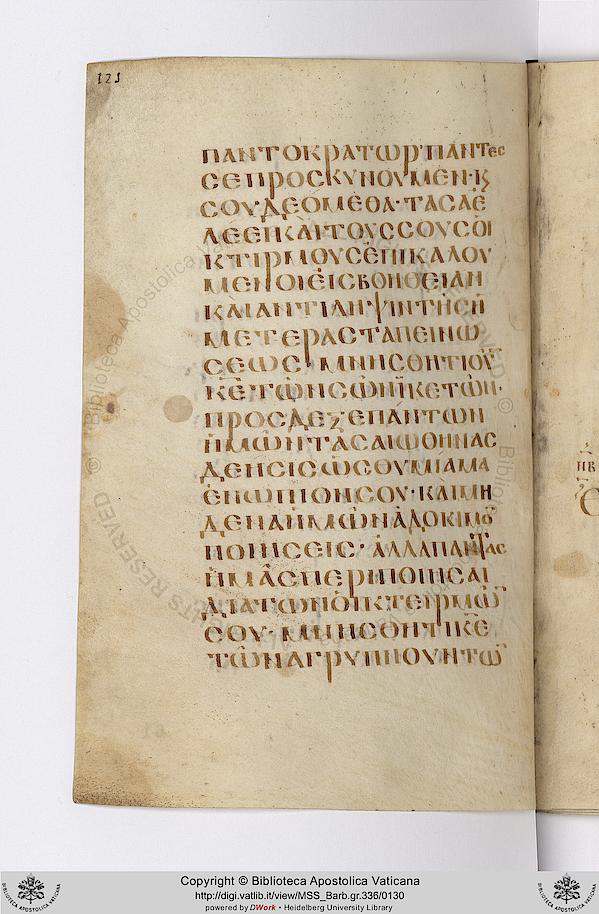 121
ΠΑΝΤΟΚΡΑΤΩΡ· ΠΑΝΤΕΣ
ΣΕ ΠΡΟΣΚΥΝΟΥΜΕΝ· Κ
ΣΟΥ ΔΕΟΜΕΘΑ· ΤΑΣ ΑΕ
ΛΕΕΙΝ ΚΑΙ ΤΟΥΣ ΣΟΥΣ ΟΙ
ΚΤΙΡΜΟΥΣ ΕΠΙΚΑΛΟΥ
ΜΕΝΟΙ ΕΙΣ ΒΟΗΘΕΙΑΝ
ΚΑΙ ΑΝΤΙΛΗΨΙΝ ΤΗΣ Η
ΜΕΤΕΡΑΣ ΤΑΠΕΙΝΩ
ΣΕΩΣ· ΜΝΗΣΘΗΤΙ ΟΥ
ΚΕ· ΤΩΝ ΣΩΝ ΙΚΕΤΩΝ·
ΠΡΟΣΔΕΞΕ ΠΑΝΤΩΝ
ΗΜΩΝ ΤΑΣ ΑΙΩΘΙΝΑΣ
ΔΕΗΣΙΣ ΩΣ ΘΥΜΙΑΜΑ
ΕΝΩΠΙΟΝ ΣΟΥ· ΚΑΙ ΜΗ
ΔΕΝΑ ΗΜΩΝ ΑΔΟΚΙΜΟ
ΠΟΙΗΣΕΙΣ· ΑΛΛΑ ΠΑΝΤΑΣ
ΗΜΑΣ ΠΕΡΙΠΟΙΗΣΑΙ
ΔΙΑ ΤΩΝ ΟΙΚΤΕΙΡΜΩ
ΣΟΥ· ΜΝΗΣΘΗΤΙ ΚΕ
ΤΩΝ ΑΓΡΥΠΝΟΥΝΤΩ
Copyright © Biblioteca Apostolica Vaticana
http://digi.vatlib.it/view/MSS_Barb.gr.336/0130
powered by DWork • Heidelberg University Library